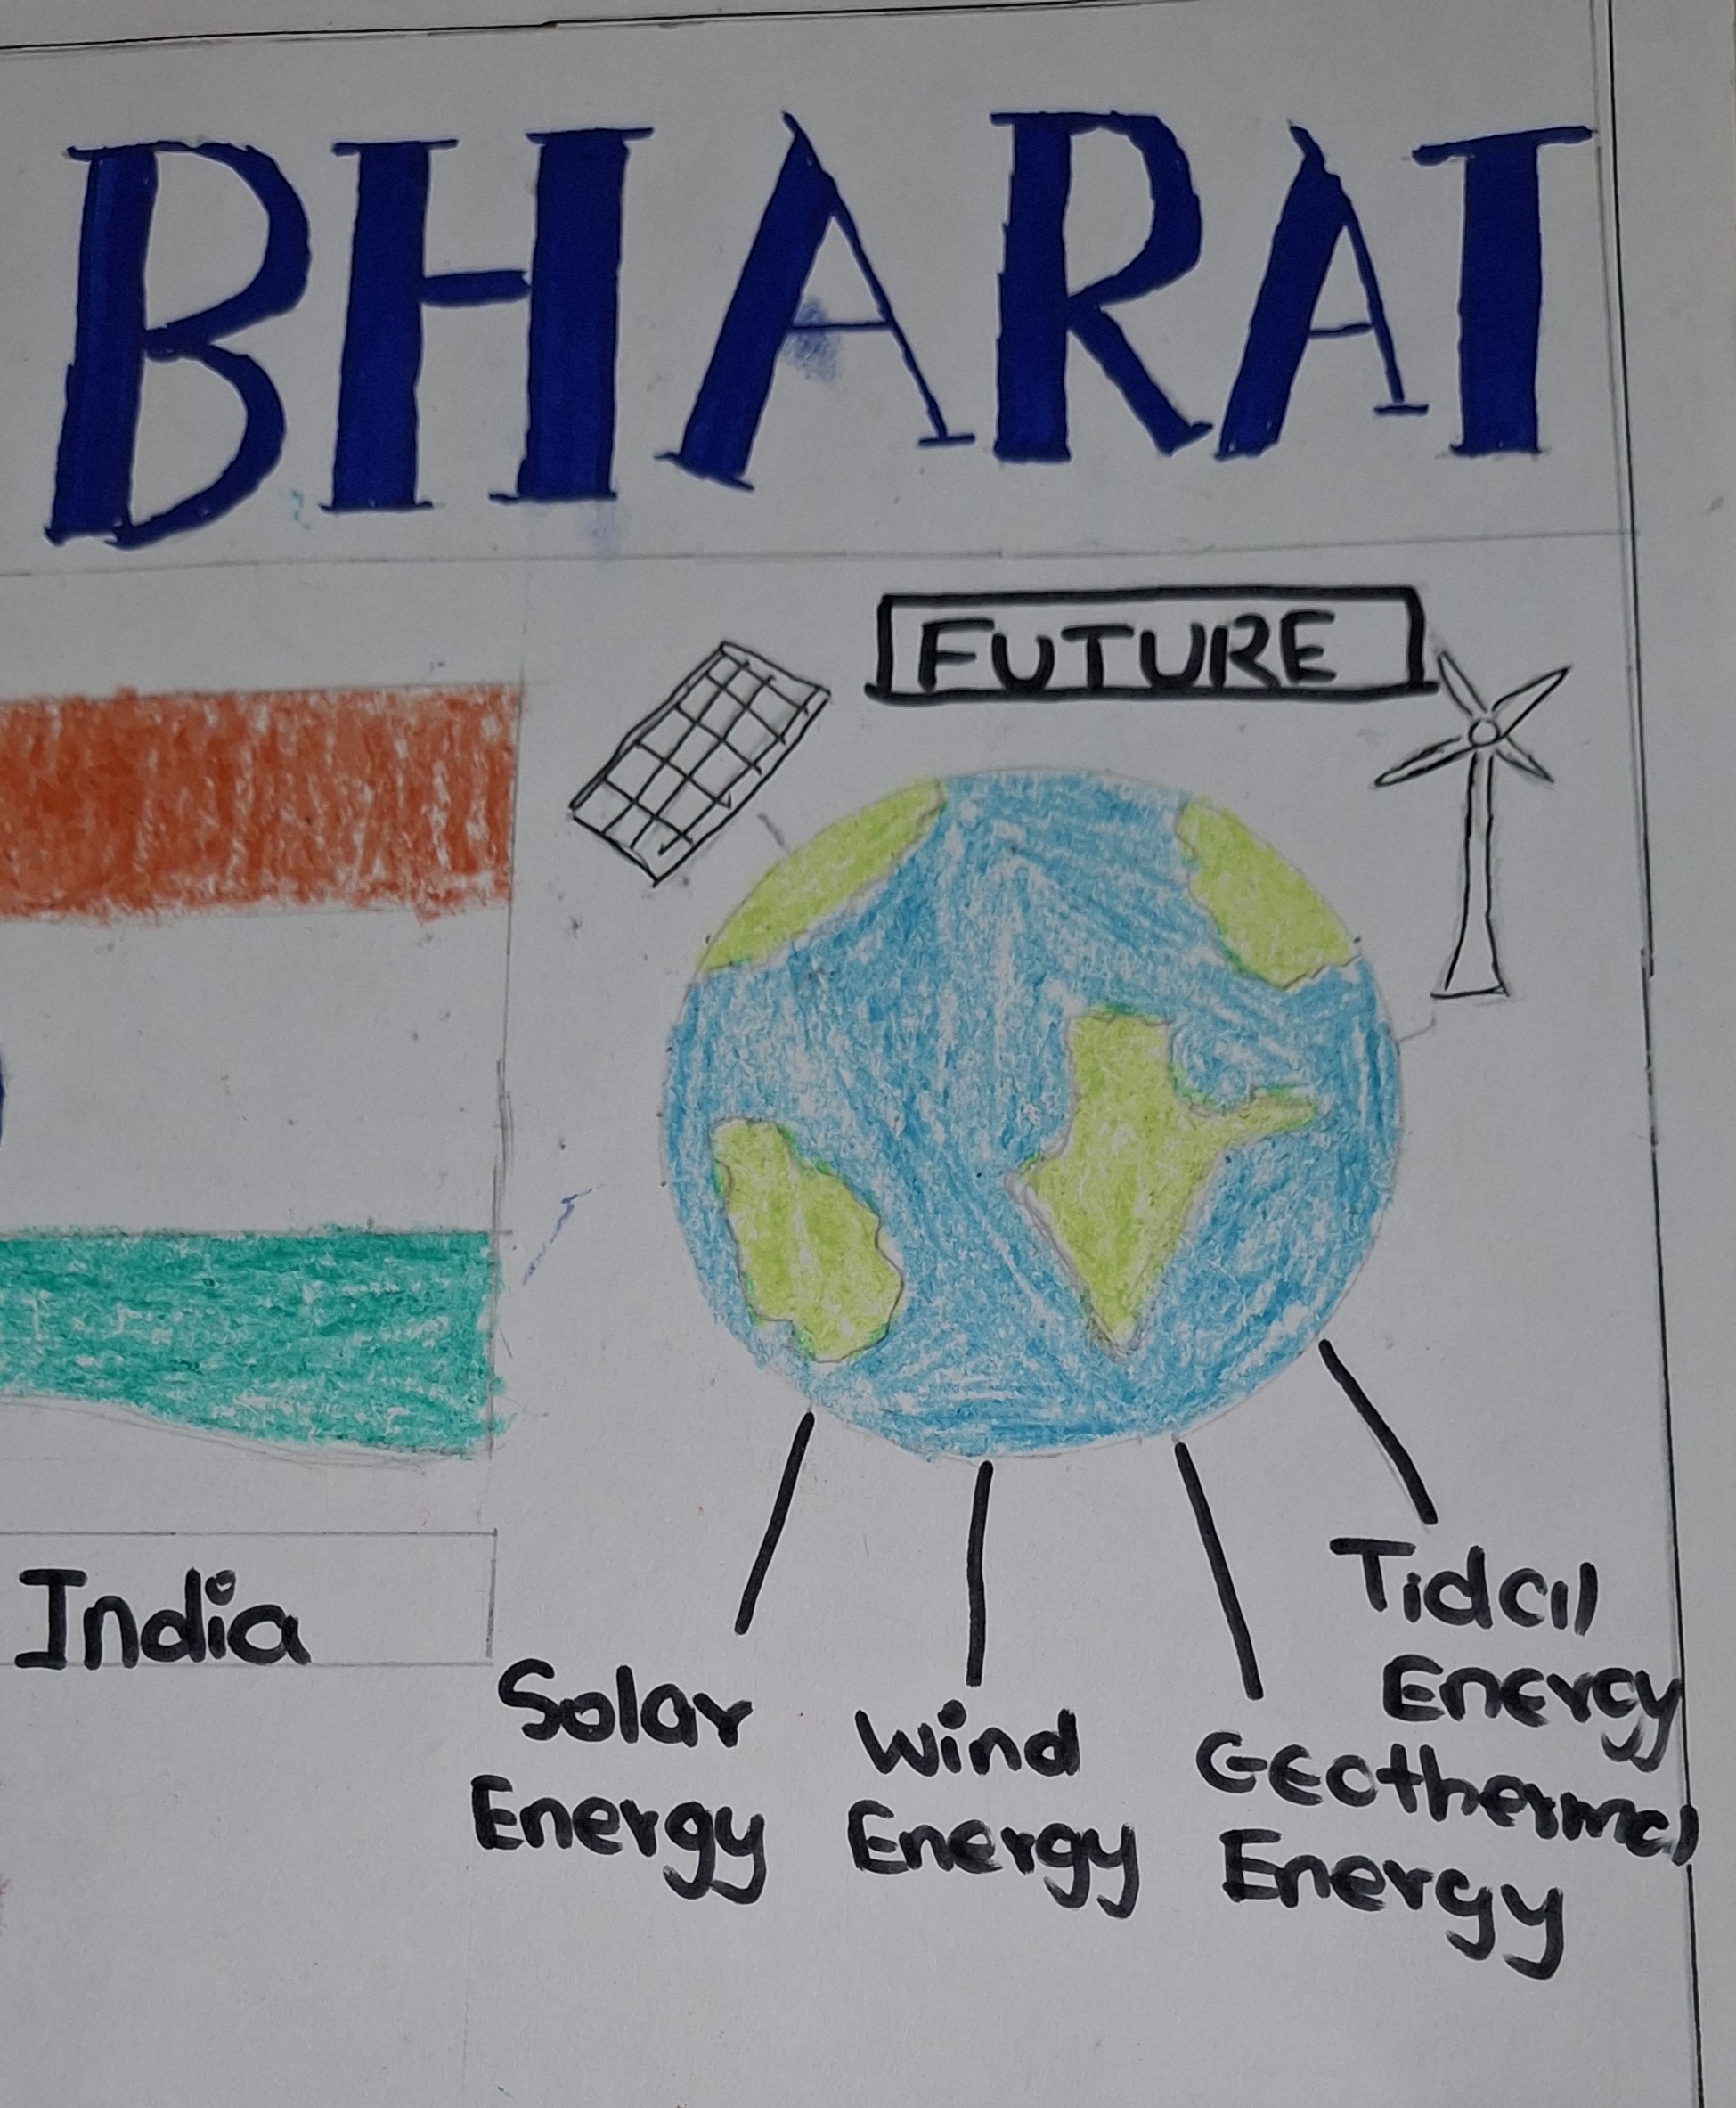 BHARAT
FUTURE
India
Solar
Energy
Wind
Energy
Geothermal
Energy
Tidal
Energy